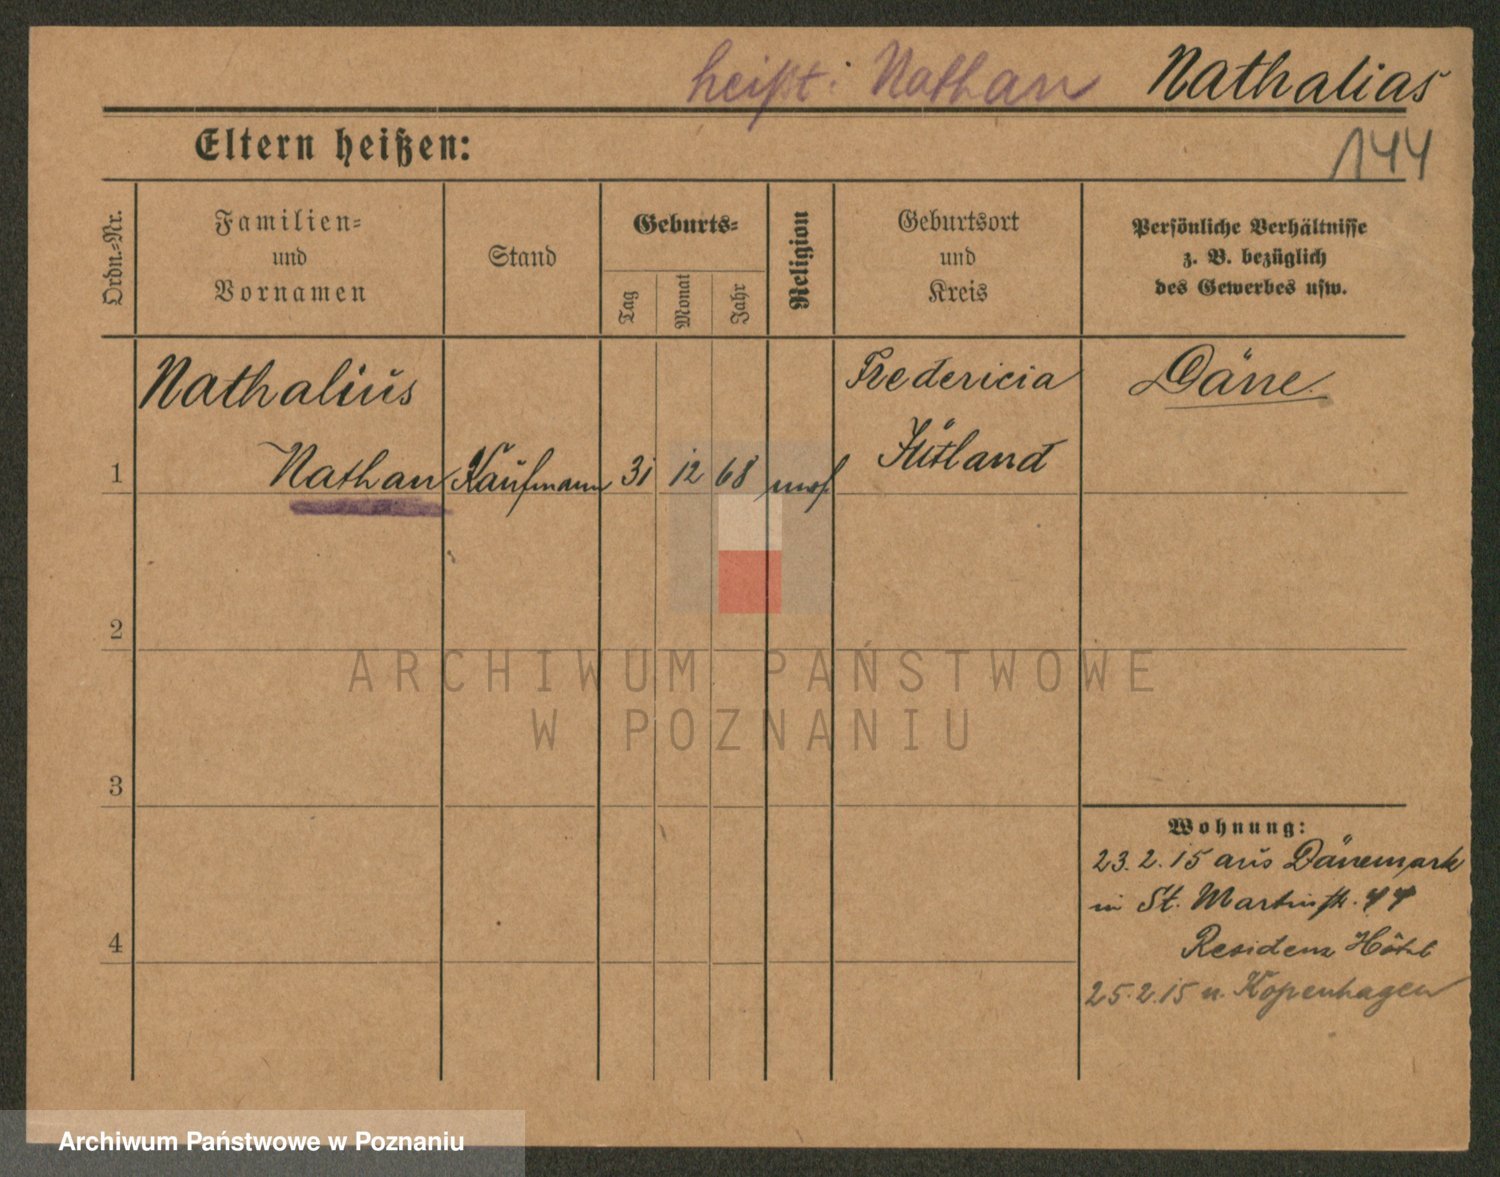 heißt: Nathan Nathalias
Eltern heißen:
144
Ordn.-Nr.
Familien-
und
Vornamen
Stand
Geburts-
Tag
Monat
Jahr
Religion
Geburtsort
und
Kreis
Persönliche Verhältnisse
z. B. bezüglich
des Gewerbes usw.
Nathaliŭs
Fredericia
Däne
1
Nathan
Kaŭfmann
31
12
68
mos
Jütland
2
3
4
Wohnung:
23.2.15 aŭs Dänemark
in St. Martinstr.
Residenz Hôtel
25.2.15 n. Kopenhagen
ARCHIWUM PAŃSTWOWE
W POZNANIU
Archiwum Państwowe w Poznaniu